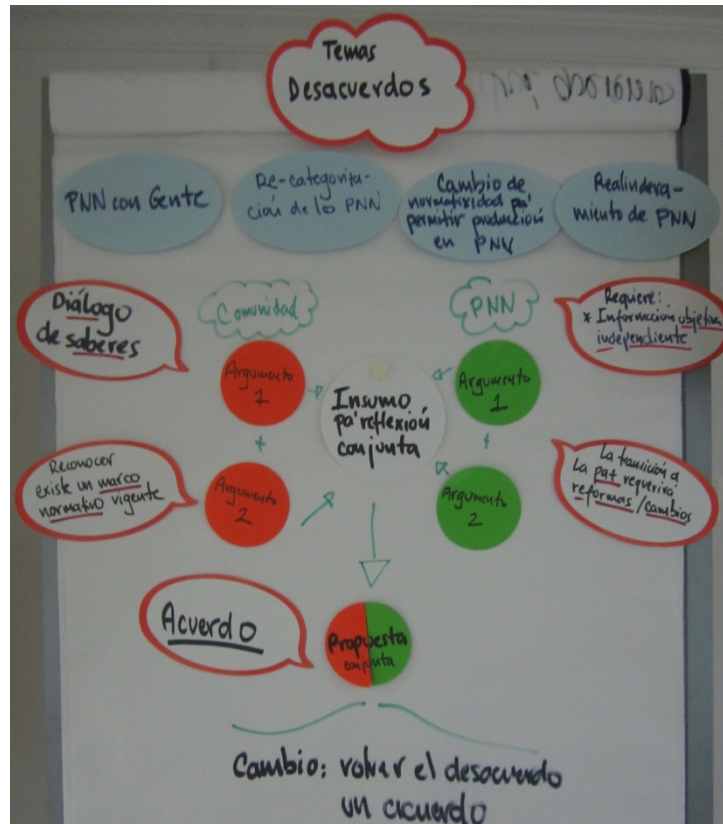 Temas
Desacuerdos
PNN con Gente
Re-categoriza-
ción de los PNN
Cambio de
normatividad pa'
permitir producción
en PNN
Realindera-
miento de PNN
Diálogo
de saberes
Comunidad
PNN
Requiere:
* Información objetiva
independiente
Argumento
1
Insumo
pa' reflexión
conjunta
Argumento
1
+
+
Reconocer
existe un marco
normativo vigente
Argumento
2
Argumento
2
La transición a
la paz requerirá
reformas / cambios
Acuerdo
Propuesta
conjunta
Cambio: volver el desacuerdo
un acuerdo